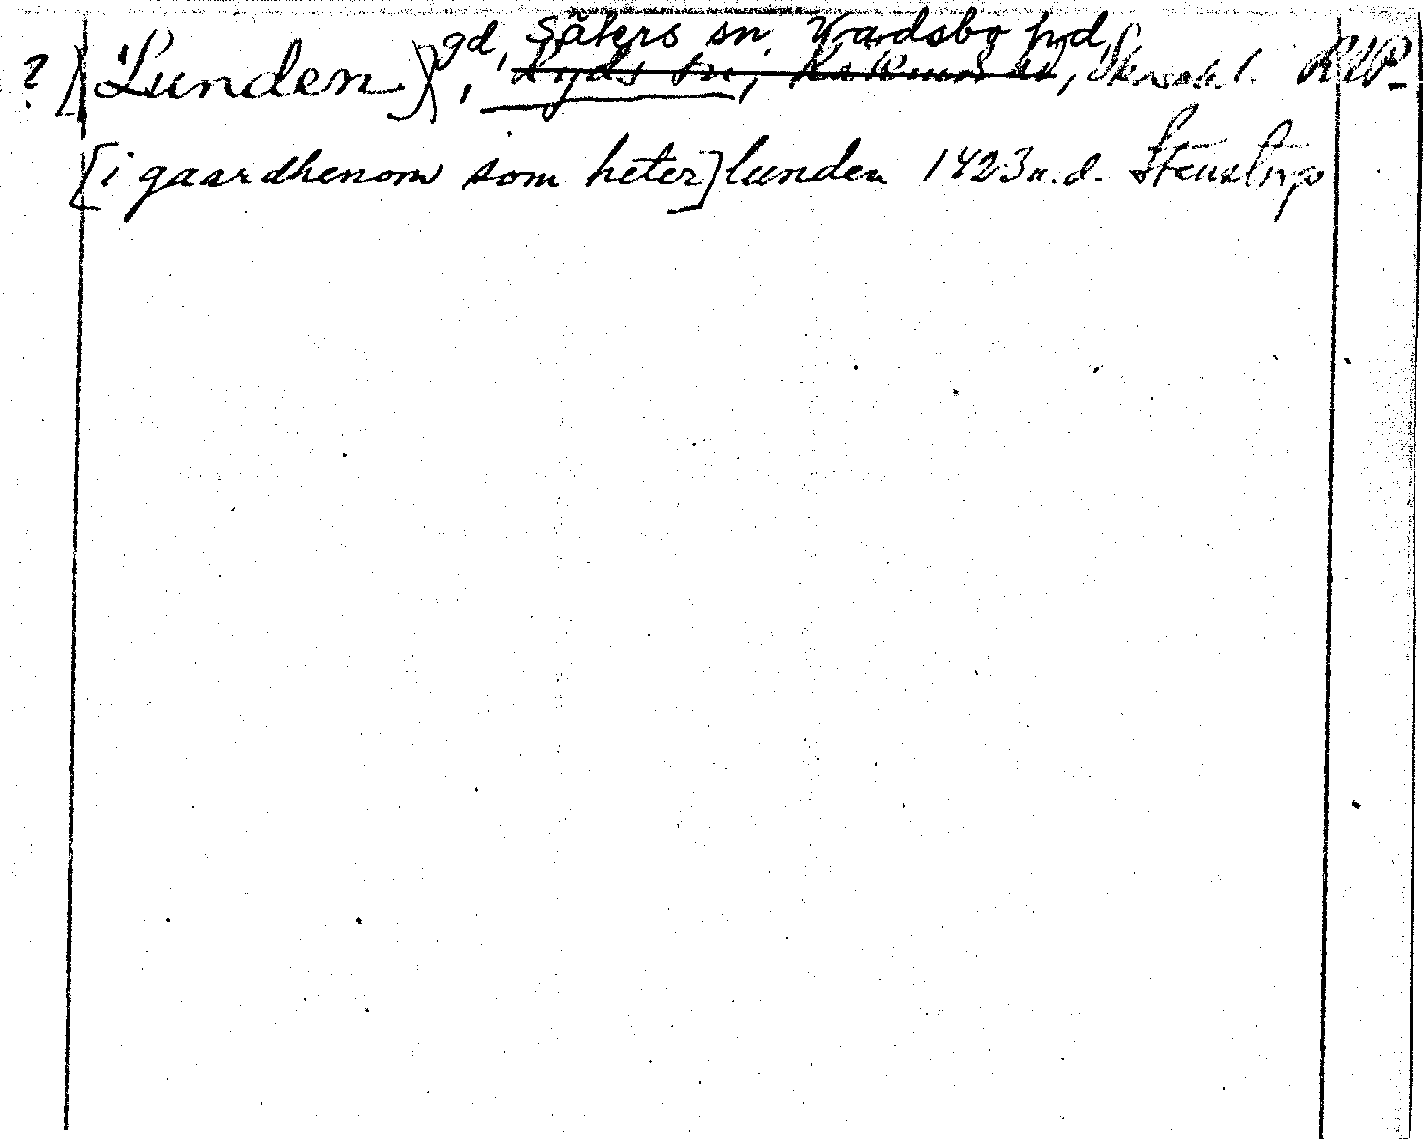 ? [Lunden], gd, Säters sn, Vadsbo hd, Skarab l. RAP.
[i gaardhenom som heter] lunden 1423 u.d. Stenstorp